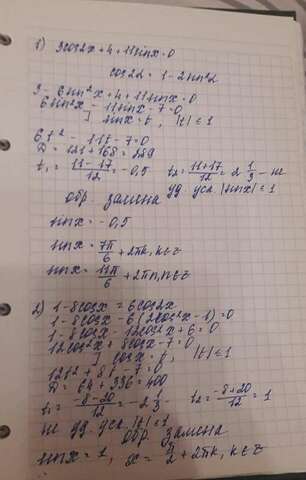 1) 3cos2x + 4 + 11sinx = 0
cos2α = 1 - 2sin²α
3 - 6sin²x + 4 + 11sinx = 0
6sin²x - 11sinx - 7 = 0
] sinx = t, |t| ≤ 1
6t² - 11t - 7 = 0
D = 121 + 168 = 289
t₁ = (11 - 17)/12 = -0,5 t₂ = (11 + 17)/12 = 2 1/3 - не
уд. усл. |sinx| ≤ 1
обр. замена
sinx = -0,5
sinx = 7π/6 + 2πk, k∈z
sinx = 11π/6 + 2πn, n∈z
2) 1 - 8cosx = 6cos2x
1 - 8cosx - 6(2cos²x - 1) = 0
1 - 8cosx - 12cos²x + 6 = 0
12cos²x + 8cosx - 7 = 0
] cosx = t, |t| ≤ 1
12t² + 8t - 7 = 0
D = 64 + 336 = 400
t₁ = (-8 - 20)/12 = -2 1/3 t₂ = (-8 + 20)/12 = 1
не уд. усл. |t| ≤ 1
обр. замена
sinx = 1, x = π/2 + 2πk, k∈z